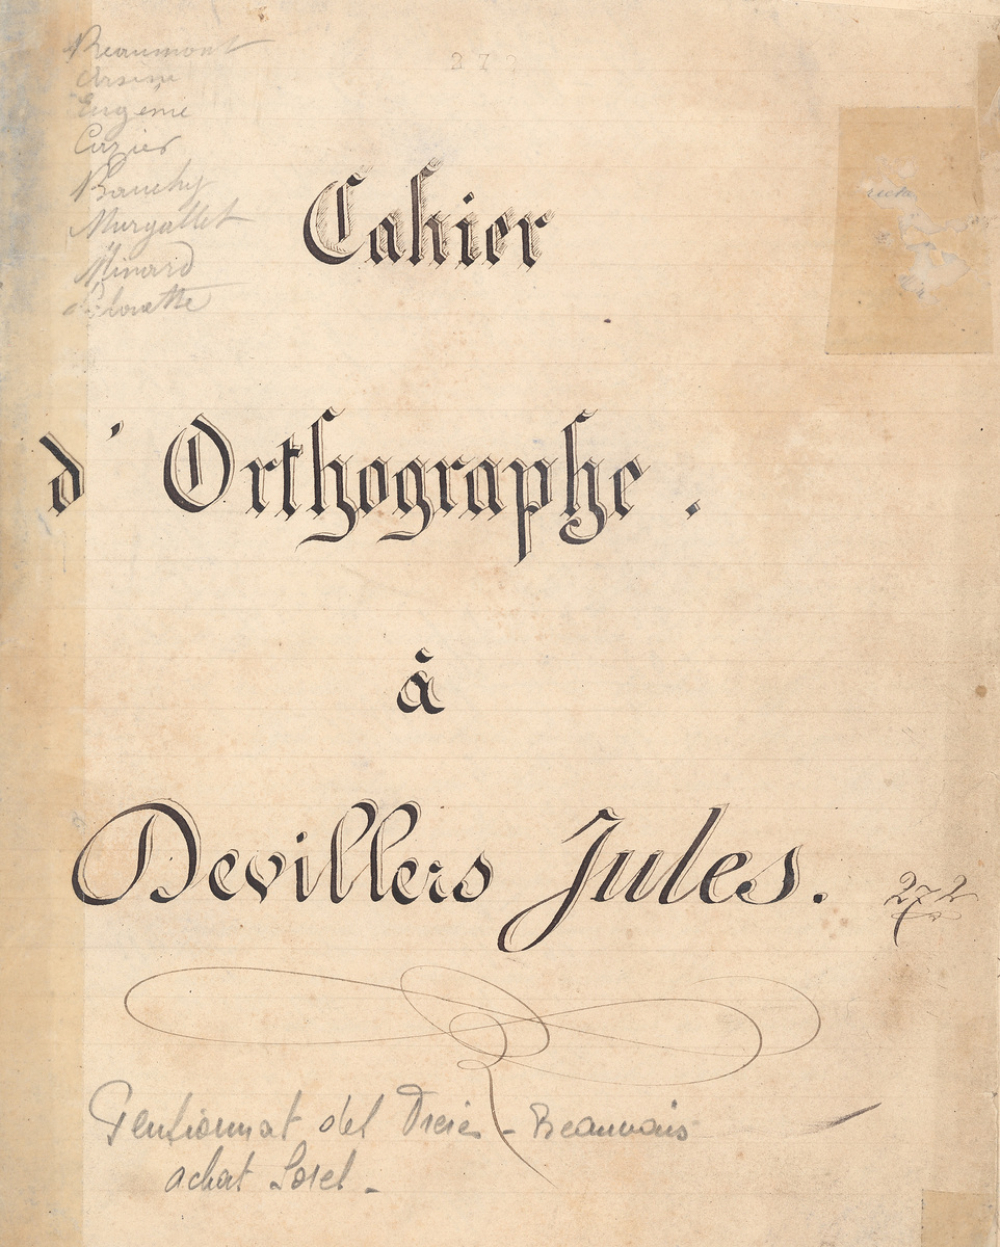 Beaumont
Arsène
Eugénie
Cozier
Bauchy
Murgallet
Minard
272
Cahier
d'Orthographe.
à
Devillers Jules.
272
Pensionnat del - Beauvais
achat Sorel -